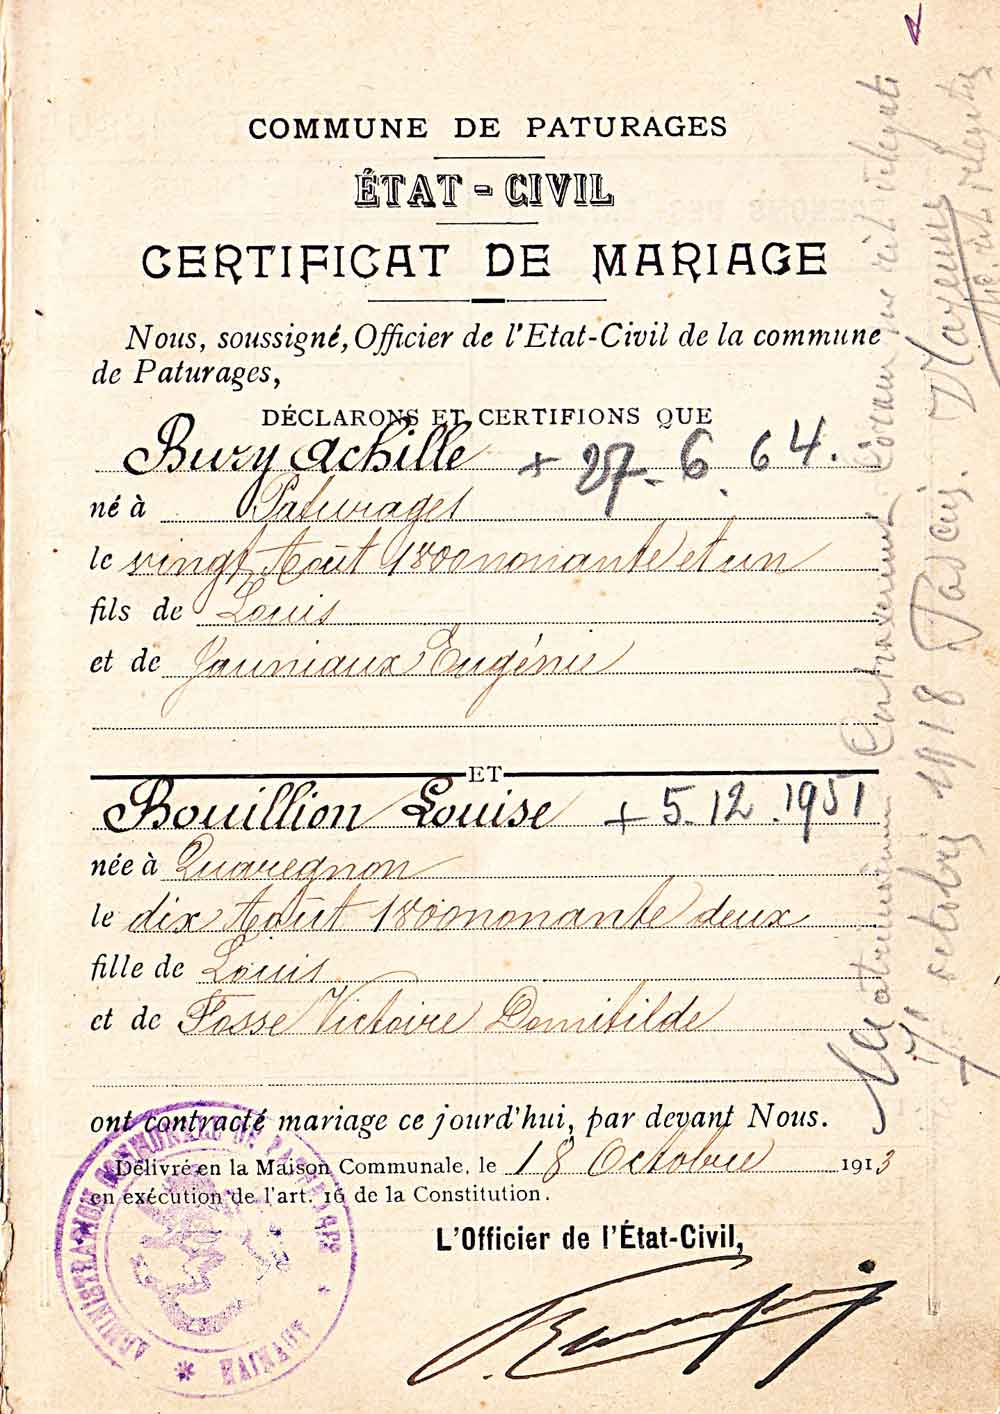 COMMUNE DE PATURAGES
ÉTAT-CIVIL
CERTIFICAT DE MARIAGE
Nous, soussigné, Officier de l'Etat-Civil de la commune
de Paturages,
DÉCLARONS ET CERTIFIONS QUE
Bury Achille + 27.6.64.
né à Paturages
le vingt Août 1800 nonante et un
fils de Louis
et de Jauniaux Eugénie
ET
Bouillion Louise + 5.12.1951
née à Quaregnon
le dix Août 1800 nonante deux
fille de Louis
et de Fosse Victoire Domitilde
ont contracté mariage ce jourd'hui, par devant Nous.
Délivré en la Maison Communale, le 18 Octobre 1913
en exécution de l'art. 16 de la Constitution.
L'Officier de l'État-Civil,
ADMINISTRATION COMMUNALE DE PATURAGES
* HAINAUT *
Matrimonium contraxerunt coram me
octobry 1918